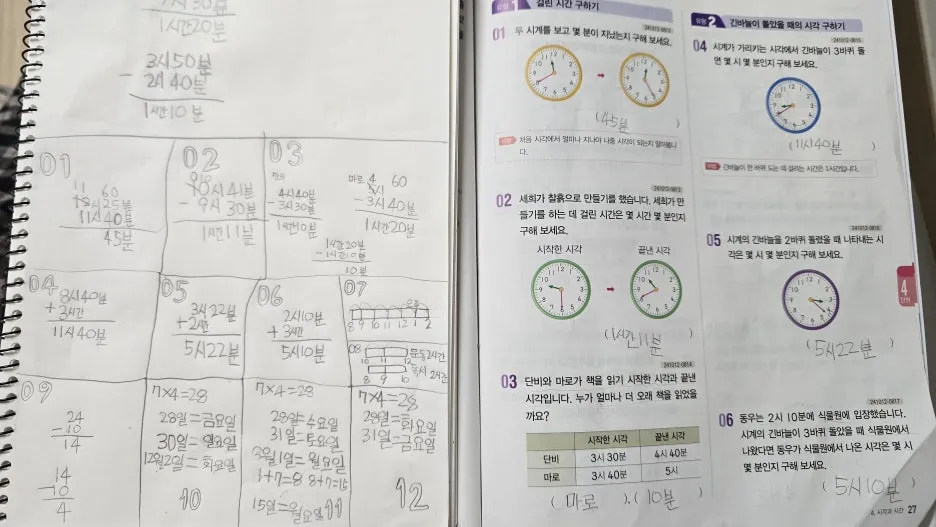 1시간20분
3시50분
- 2시40분
1시간10분
01
11 60
12시25분
11시40분
45분
02
10시41분
- 9시30분
1시간11분
03
4시40분
- 3시30분
1시간10분
마로 4
5시 60
- 3시40분
1시간20분
1시간20분
- 1시간10분
10분
04
8시40분
+ 3시간
11시40분
05
3시22분
+ 2시간
5시22분
06
2시10분
+ 3시간
5시10분
07
8 9 10 11 12 1 2
08
10 11 12
운동2시간
8 9 10
독서 2시간
09
24
- 10
14
14
- 10
4
7×4=28
28일=금요일
30일=일요일
12월2일=화요일
10
7×4=28
28일=수요일
31일=토요일
3월1일=일요일
1+7=8 8+7=15
15일=일요일
11
7×4=28
28일=화요일
31일=금요일
12
유형 1 걸린 시간 구하기
241012-0812
01 두 시계를 보고 몇 분이 지났는지 구해 보세요.
(45분)
처음 시각에서 얼마나 지나야 나중 시각이 되는지 알아봅니다.
241012-0813
02 세희가 찰흙으로 만들기를 했습니다. 세희가 만
들기를 하는 데 걸린 시간은 몇 시간 몇 분인지
구해 보세요.
시작한 시각 끝낸 시각
(1시간11분)
241012-0814
03 단비와 마로가 책을 읽기 시작한 시각과 끝낸
시각입니다. 누가 얼마나 더 오래 책을 읽었을
까요?
시작한 시각 끝낸 시각
단비 3시 30분 4시 40분
마로 3시 40분 5시
(마로), (10분)
유형 2 긴바늘이 돌았을 때의 시각 구하기
241012-0815
04 시계가 가리키는 시각에서 긴바늘이 3바퀴 돌
면 몇 시 몇 분인지 구해 보세요.
(11시40분)
긴바늘이 한 바퀴 도는 데 걸리는 시간은 1시간입니다.
241012-0816
05 시계의 긴바늘을 2바퀴 돌렸을 때 나타내는 시
각은 몇 시 몇 분인지 구해 보세요.
(5시22분)
4
단원
241012-0817
06 동우는 2시 10분에 식물원에 입장했습니다.
시계의 긴바늘이 3바퀴 돌았을 때 식물원에서
나왔다면 동우가 식물원에서 나온 시각은 몇 시
몇 분인지 구해 보세요.
(5시10분)
4. 시각과 시간 27